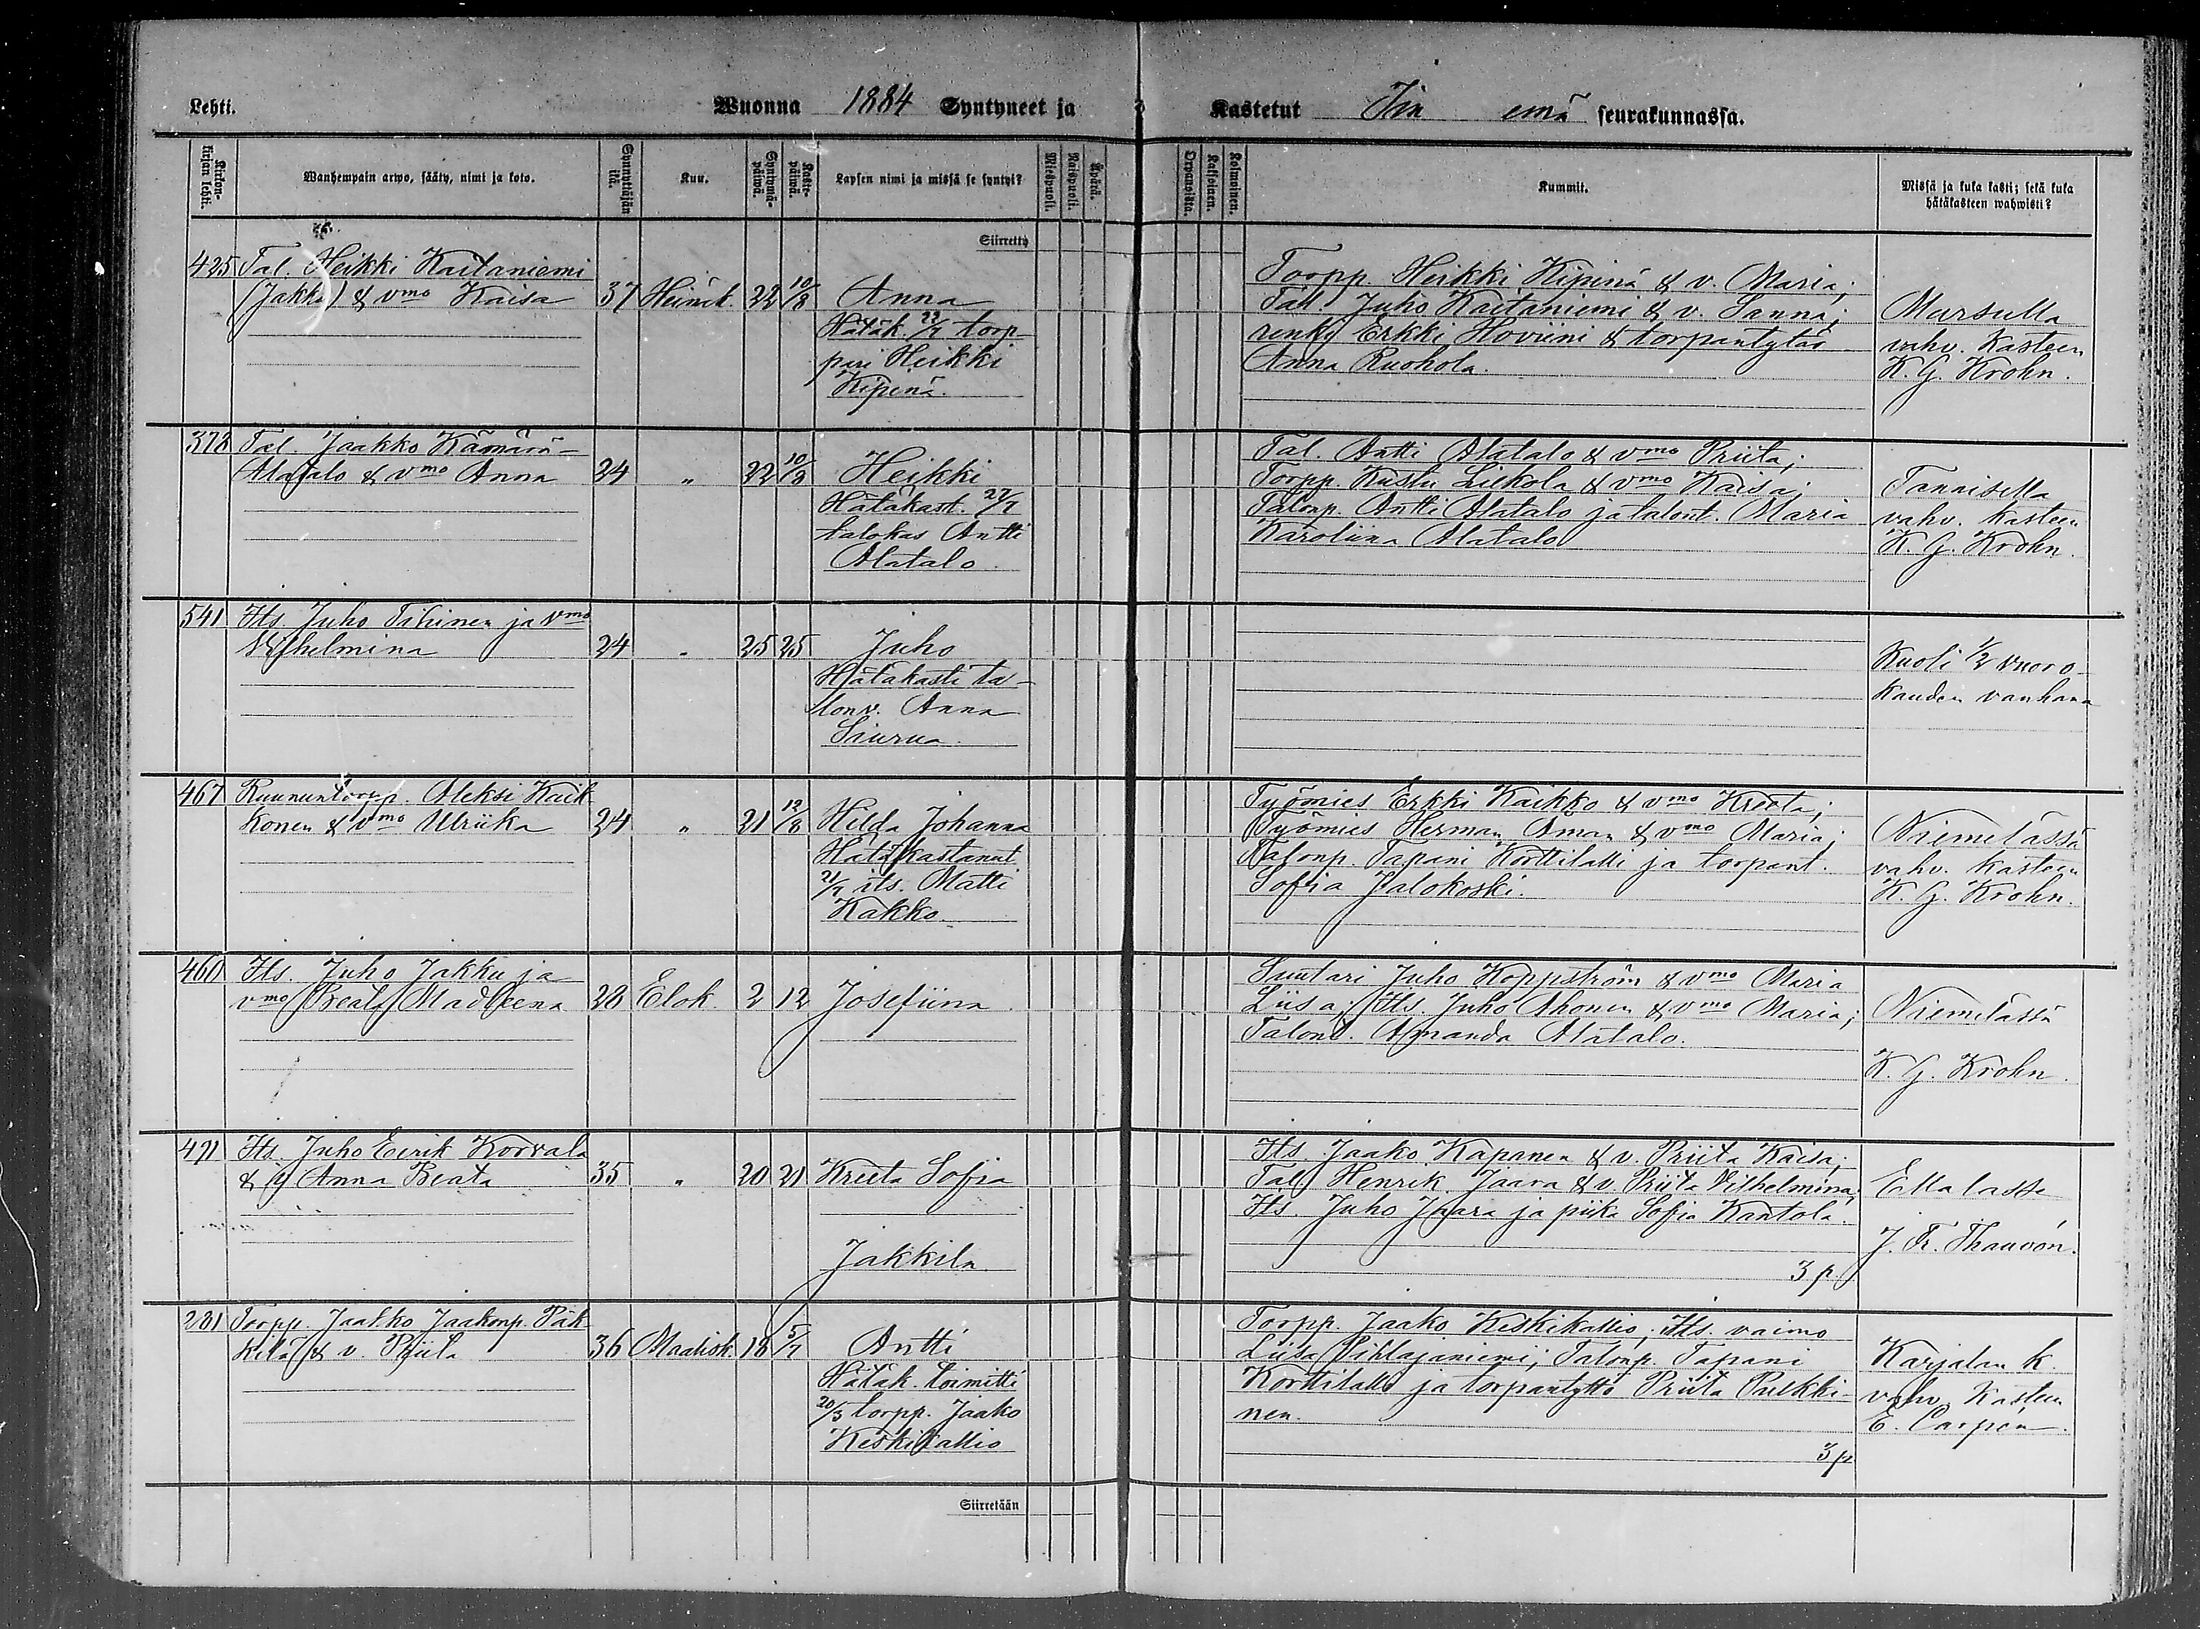 Lehti. Wuonna 1884 Syntyneet ja Kastetut Iin emä seurakunnassa.
Kirkon-kirjan lehti. Wanhempain arwo, sääty, nimi ja koto. Synnyttäjän ikä. Kuu. Syntymä-päiwä. Kaste-päiwä. Lapsen nimi ja missä se syntyi? Miespuoli. Naispuoli. Äpärä. Orpanoista. Kaksoinen. Kolmoinen. Kummit. Missä ja kuka kasti; sekä kuka hätäkasteen wahwisti?
Siirretty
425 Tal. Heikki Kaitaniemi
(Jakko) & vmo Kaisa 37 Heinäk. 22 10/8 Anna
Hätäk. 22/7 torp-
pari Heikki
Kipinä.
Torpp. Heikki Kipinä & v. Maria;
Tal. Juho Kaitaniemi & v. Sanna;
renki Erkki Hoviini & torpantytär
Anna Ruohola.
Marsulla
vahv. kasteen
K. G. Krohn.
373 Tal. Jaakko Kämärä-
Alatalo & vmo Anna 24 " 22 10/8 Heikki
Hätäkast. 22/7
talokas Antti
Alatalo.
Tal. Antti Alatalo & vmo Priita;
Torpp. Kustu Liekola & vmo Kaisa;
Talonp. Antti Alatalo ja talont. Maria
Karoliina Alatalo
Tannisella
vahv. kasteen
K. G. Krohn.
541 Its Juho Tihinen ja vmo
Vilhelmina 24 " 25 25 Juho
Hätäkasti ta-
lonv. Anna
Siurua.
Kuoli 1/2 vuoro-
kauden vanhana
467 Ruununtorpp. Aleksi Kaik-
konen & vmo Ulriika 24 " 21 12/8 Hilda Johanna
Hätäkastanut
21/7 its. Matti
Kakko.
Työmies Erkki Kaikko & vmo Kreeta;
Työmies Herman Åman & vmo Maria;
Talonp. Tapani Korttilalli ja torpant.
Sofia Jalokoski.
Niemelässä
vahv. kasteen
K. G. Krohn.
460 Its. Juho Jakku ja
vmo Beata Madleena 28 Elok. 2 12 Josefiina
Suutari Juho Koppström & vmo Maria
Liisa; Its. Juho Ahonen & vmo Maria;
Talont. Amanda Alatalo.
Niemelässä
K. G. Krohn.
471 Its. Juho Eerik Korvala
& v. Anna Beata 35 " 20 21 Kreeta Sofia
Jakkila
Its. Jaako Kapanen & v. Priita Kaisa;
Tal. Henrik Jaara & v. Priita Vilhelmina;
Its. Juho Jaara ja piika Sofia Kantola.
3 p.
Ellalassa
J. Fr. Thauvón.
281 Torpp. Jaakko Jaakonp. Päk-
kilä & v. Priita 36 Maalisk. 18 5/7 Antti
Hätäk. toimitti
20/3 torpp. Jaako
Keskikallio
Torpp. Jaako Keskikallio; Its. vaimo
Liisa Pihlajaniemi; Talonp. Tapani
Korttilalli ja torpantyttö Priita Pulkki-
nen.
3 p
Karjalan k.
vahv. kasteen
E. Carpén.
Siirretään